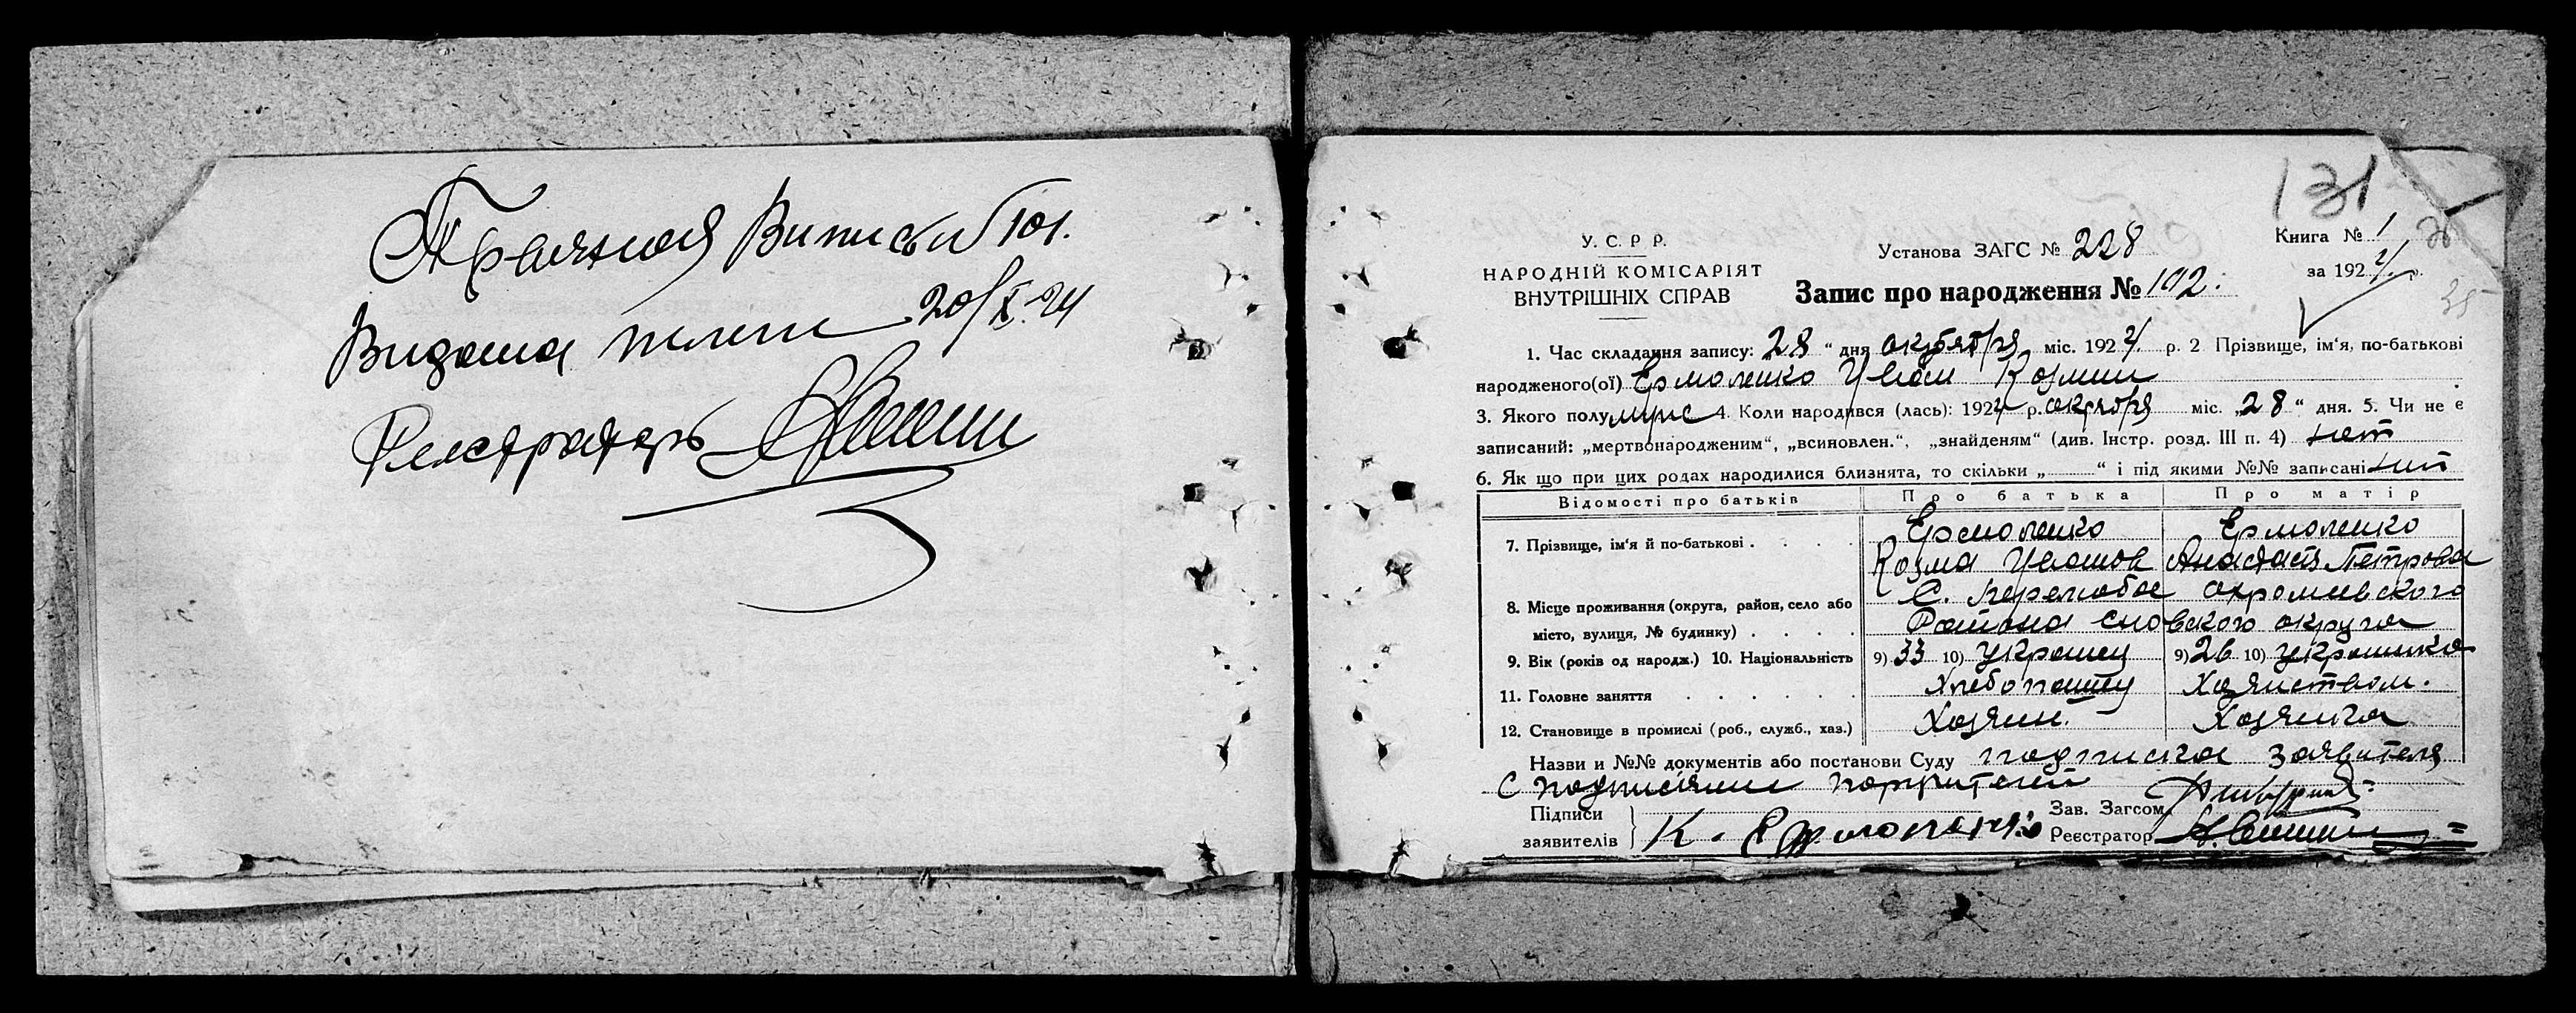 Выпись N 101.
Видана 20/X-24
131
У. С. Р Р.
НАРОДНІЙ КОМІСАРІЯТ
ВНУТРІШНІХ СПРАВ
Установа ЗАГС № 228
Запис про народження № 102.
Книга № 1
за 1924 р.
1. Час складання запису: 28 “ дня октября міс. 1924 р. 2 Прізвище, ім‘я, по-батькові
народженого(ої) Ермоленко Иван Козмин
3. Якого полу муж 4. Коли народився (лась): 1924 р. октября міс. „28“ дня. 5. Чи не є
записаний: „мертвонародженим“, „всиновлен.“, „знайденям“ (див. Інстр. розд. III п. 4) нет
6. Як що при цих родах народилися близнята, то скільки „ “ і під якими №№ записані нет
Відомості про батьків Про батька Про матір
7. Прізвище, ім‘я й по-батькові . Ермоленко Ермоленко
Козма Иванов Анастасія Петрова
8. Місце проживання (округа, район, село або С. Перелюбое охромиевского
місто, вулиця, № будинку) . Района сновского округа
9. Вік (років од народж.) 10. Національність 9) 33 10) Украинец 9) 26 10) украинка
11. Головне заняття Хлебопашец Хозяйством.
12. Становище в промислі (роб., служб., хаз.) Хозяин. Хозяйка
Назви и №№ документів або постанови Суду подписка заявителя
с подписями
Підписи
заявителів К. Ермоленко
Зав. Загсом
Реєстратор